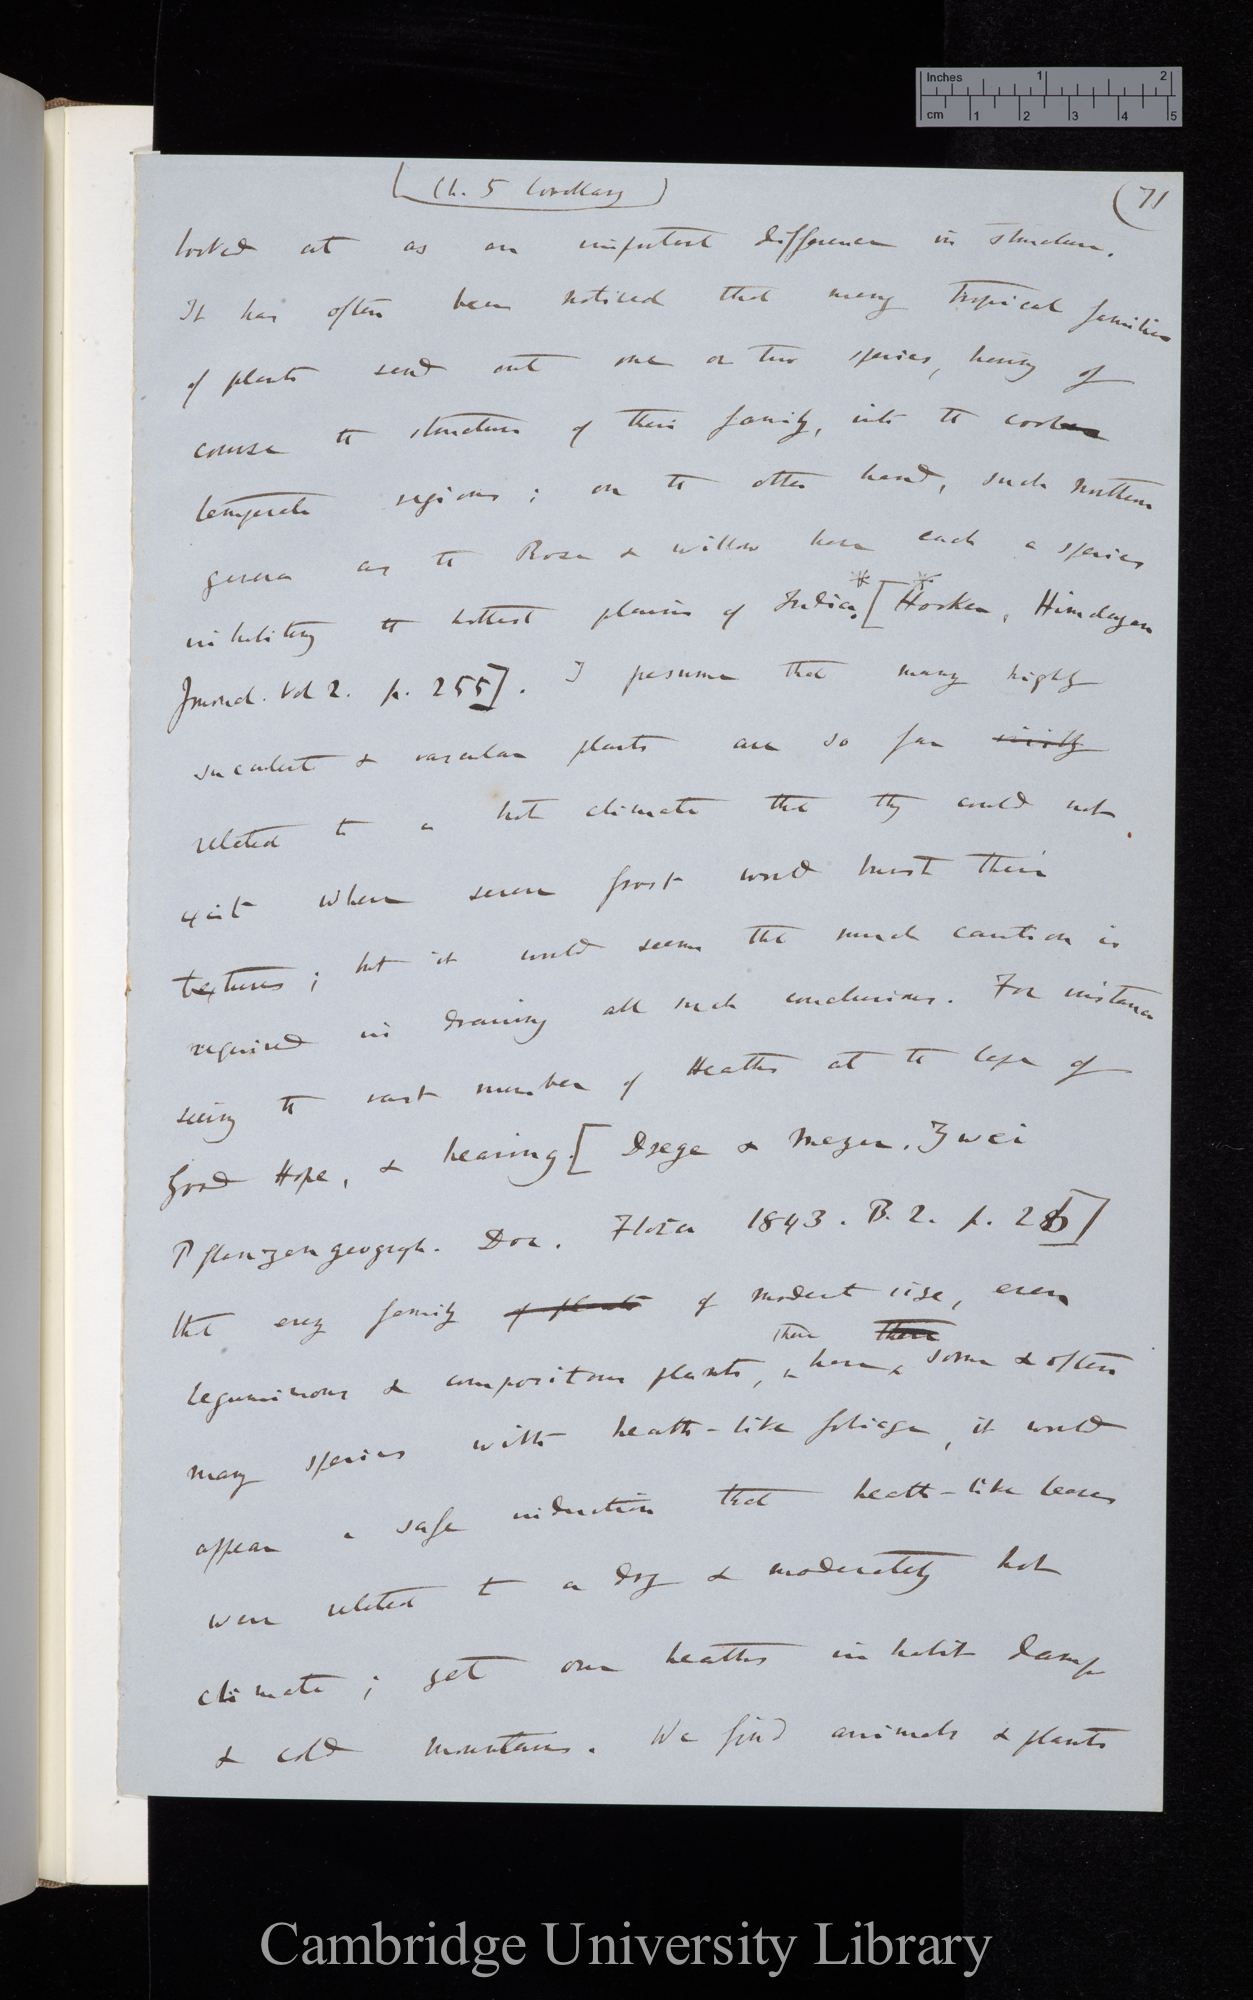 Inches 1 2
cm 1 2 3 4 5
(Ch. 5 Corollary)
(71
looked at as an important difference in structure.
It has often been noticed that many tropical families
of plants send out one or two species, having of
course the structure of their family, into the cooler
temperate regions; on the other hand, such northern
genera as the Rose & willow have each a species
inhabiting the hottest plains of India.* [*Hooker, Himalayan
Journal. Vol 2. p. 255]. I presume that many highly
succulent & vascular plants are so far strictly
related to a hot climate that they could not
exist where severe frost would burst their
textures; but it would seem that much caution is
required in drawing all such conclusions. For instance
seeing the vast number of Heaths at the Cape of
Good Hope, & hearing [Drege & Meyer. Zwei
Pflanzengeograph. Doc. Flora 1843. B. 2. p. 26]
that every family of plants of moderate size, even
there there
leguminous & compositous plants, have some & often
many species with heath-like foliage, it would
appear a safe induction that heath-like leaves
were related to a dry & moderately hot
climate; yet our heaths inhabit damp
& cold mountains. We find animals & plants
Cambridge University Library